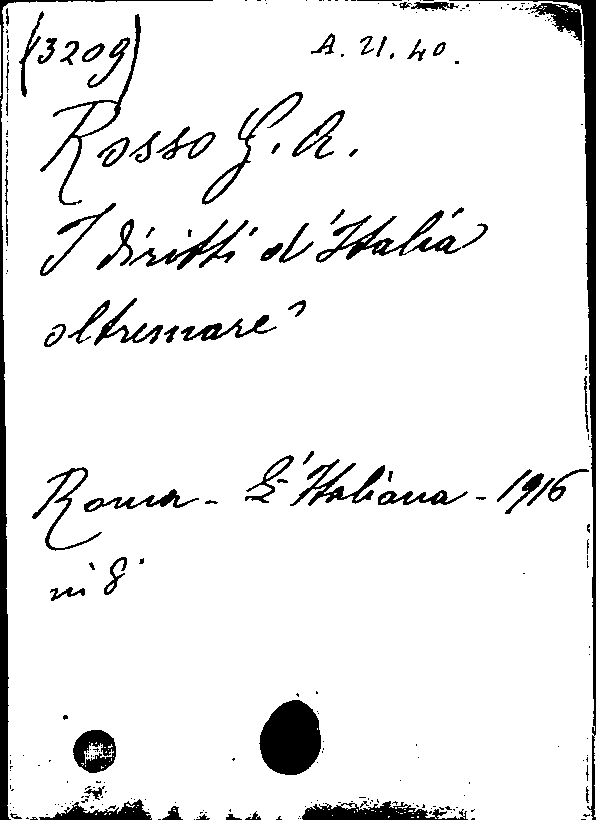 (3209) A. VI. 40.
Rosso G. A.
I diritti d'Italia
oltremare
Roma - L'Italiana - 1916
in 8°